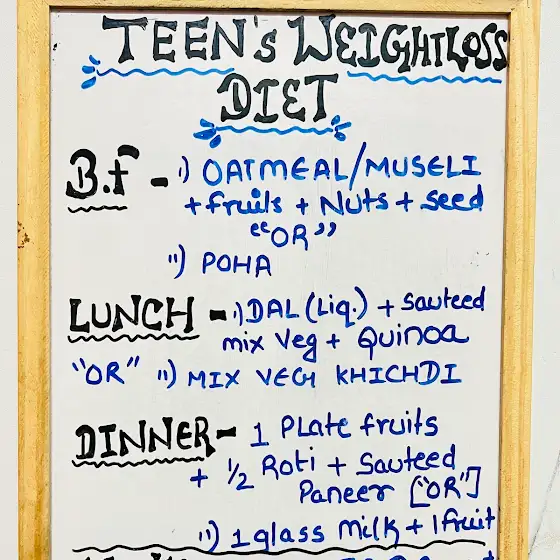 TEEN's WEIGHTLOSS
DIET
B.f - i) OATMEAL/MUSELI
+ fruits + Nuts + seed
"OR"
ii) POHA
LUNCH - i) DAL (Liq.) + sauteed
mix veg + Quinoa
"OR" ii) MIX VEG KHICHDI
DINNER - 1 Plate fruits
+ 1/2 Roti + Sauteed
Paneer ["OR"]
ii) 1 glass Milk + 1 fruit